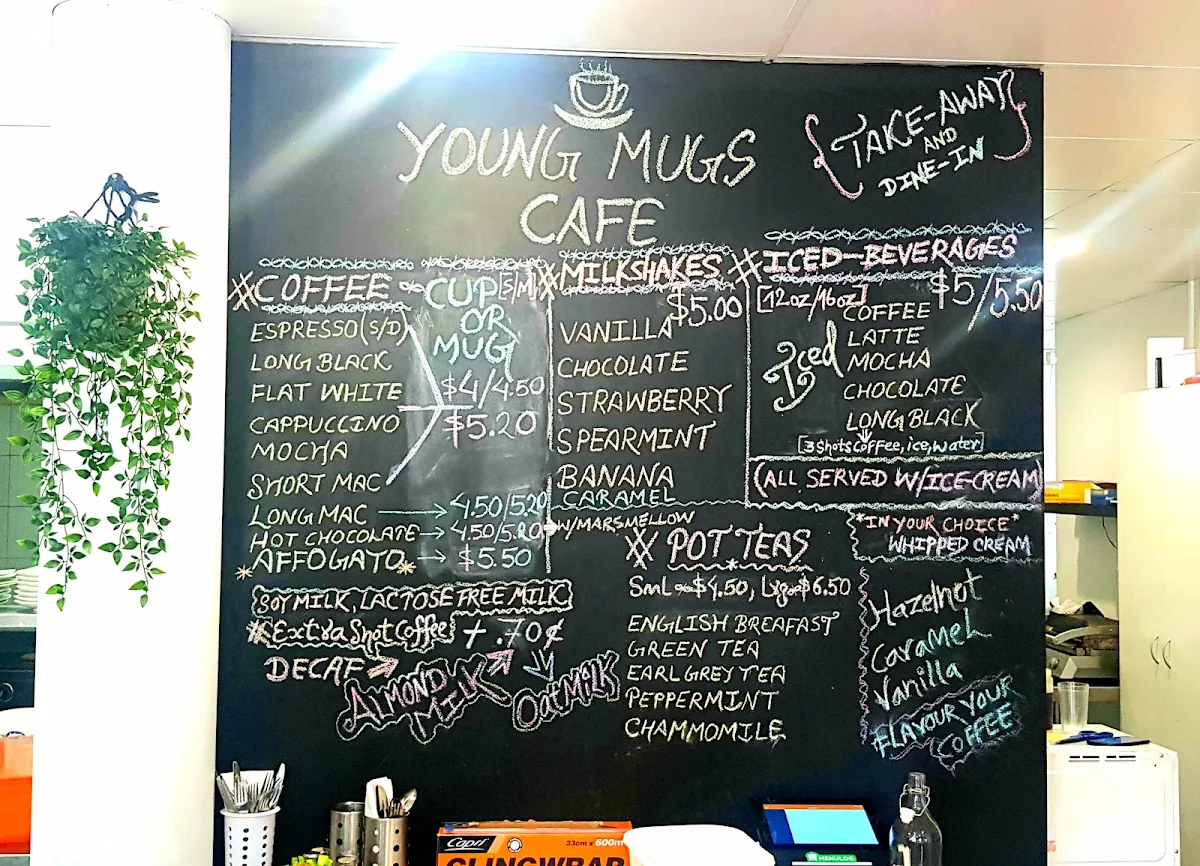 YOUNG MUGS
CAFE
{TAKE-AWAY}
AND
DINE-IN
COFFEE
CUP [S/M]
OR
MUG
ESPRESSO (S/D)
LONG BLACK
FLAT WHITE
CAPPUCCINO
MOCHA
SHORT MAC
$4/4.50
$5.20
LONG MAC → 4.50/5.20
HOT CHOCOLATE → 4.50/5.20
*AFFOGATO* → $5.50
SOY MILK, LACTOSE FREE MILK
*Extra Shot Coffee + .70¢
DECAF
ALMOND
MILK
OatMilK
MILKSHAKES
$5.00
VANILLA
CHOCOLATE
STRAWBERRY
SPEARMINT
BANANA
CARAMEL
W/MARSMELLOW
ICED-BEVERAGES
[12oz/16oz] $5/5.50
Iced
COFFEE
LATTE
MOCHA
CHOCOLATE
LONG BLACK
[3 shots coffee, ice, water]
(ALL SERVED W/ICE-CREAM)
*IN YOUR CHOICE*
WHIPPED CREAM
POT TEAS
Sml $4.50, Lrg $6.50
ENGLISH BREAFAST
GREEN TEA
EARL GREY TEA
PEPPERMINT
CHAMMOMILE
Hazelnot
Caramel
Vanilla
FLAVOUR YOUR
COFFEE
Capri
33cm x 600m
CLINGWRAP
MENULOG